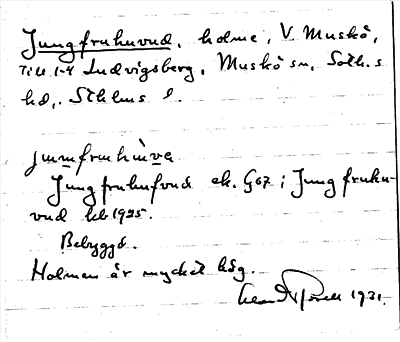 Jungfruhuvud, holme, V. Muskö,
Till 1-4 Ludvigsberg, Muskö sn, Soth.s
hd, Sthlms l.
jumfruhùve
Jungfruhufvud ek. 607; Jungfruhu-
vud hb 1925.
Bebyggd.
Holmen är mycket hög.
1931.